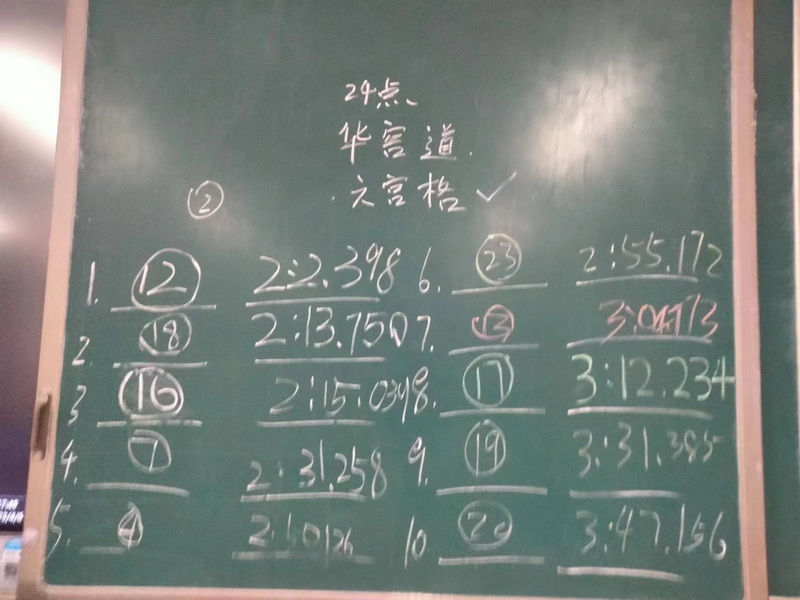 24点、
华容道.
六宫格 ✓
②
1. ⑫ 2:2.398 6. ㉓ 2:55.172
2. ⑱ 2:13.750 7. ⑬ 3:04.713
3 ⑯ 2:15.034 8. ⑰ 3:12.234
4. ⑦ 2:31.258 9. ⑲ 3:31.385
5. ④ 10 ⑳ 3:47.156